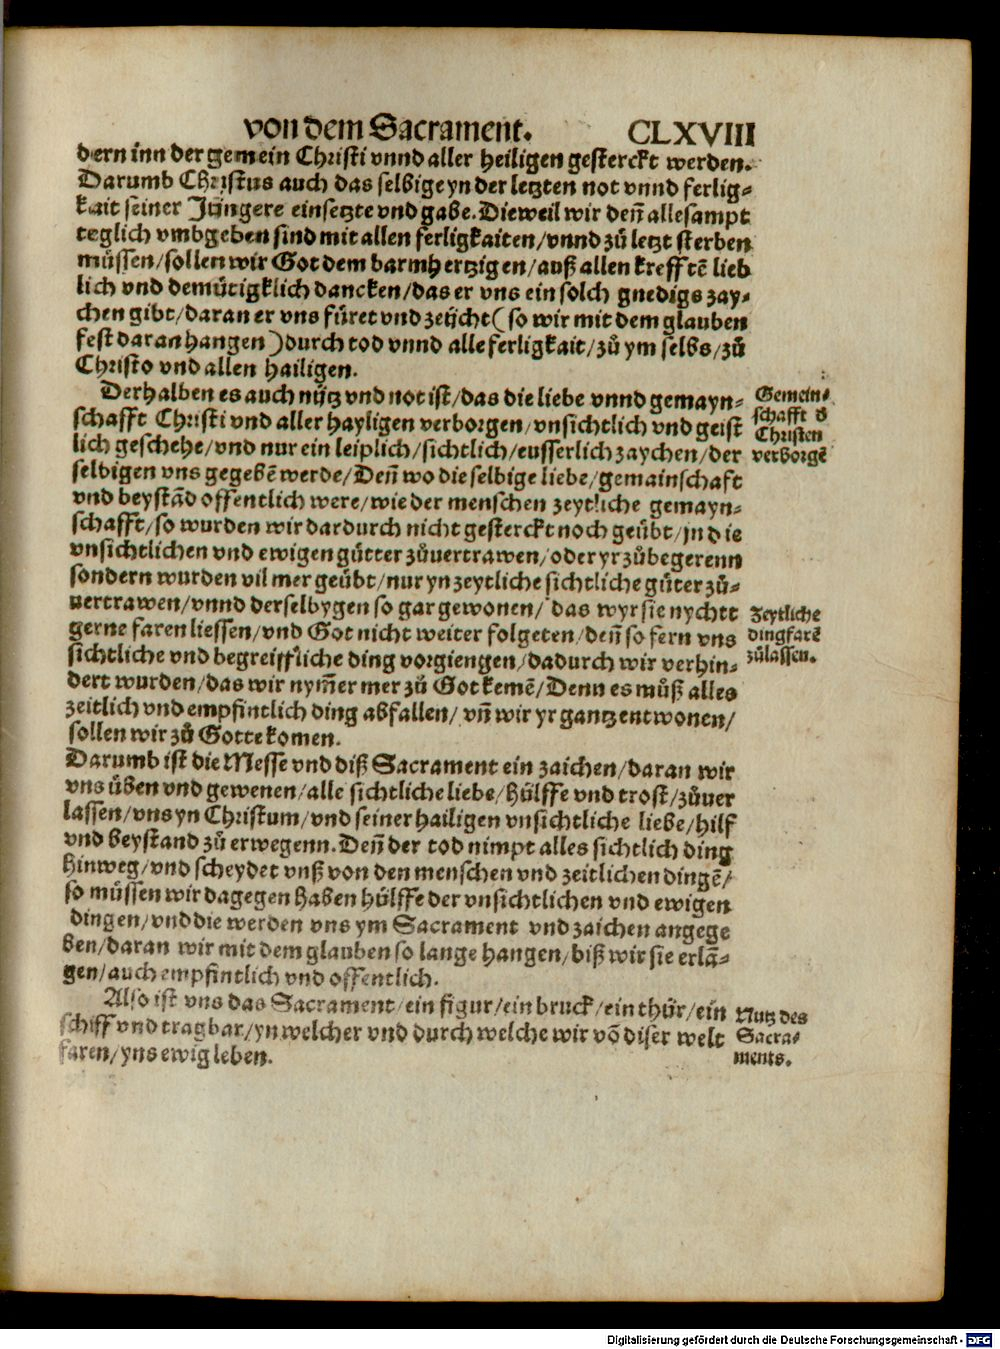 von dem Sacrament. CLXVIII
dern inn der gemein Christi vnnd aller heiligen gesterckt werden.
Darumb Christus auch das selbige yn der letzten not vnnd ferlig-
kait seiner Jüngere einsetzte vnd gabe. Dieweil wir deñ allesampt
teglich vmbgeben sind mit allen ferligkaiten/vnnd zů letzt sterben
müssen/sollen wir Got dem barmhertzigen/auß allen krefftē lieb
lich vnd demütigklich dancken/das er vns ein solch gnedigs zay-
chen gibt/daran er vns füret vnd zeücht (so wir mit dem glauben
fest daran hangen) durch tod vnnd alle ferligkait/zů ym selbs/zů
Christo vnd allen hailigen.
Derhalben es auch nütz vnd not ist/das die liebe vnnd gemayn-
schafft Christi vnd aller hayligen verborgen/vnsichtlich vnd geist
lich geschehe/vnd nur ein leiplich/sichtlich/eusserlich zaychen/der
selbigen vns gegebē werde/Deñ wo die selbige liebe/gemainschaft
vnd beystād offentlich were/wie der menschen zeytliche gemayn-
schafft/so wurden wir dardurch nicht gesterckt noch geübt/jn die
vnsichtlichen vnd ewigen gütter zůuertrawen/oder yr zůbegerenn
sondern wurden vil mer geübt/nur yn zeytliche sichtliche güter zů-
uertrawen/vnnd derselbygen so gar gewonen/das wyr sie nychtt
gerne faren liessen/vnd Got nicht weiter folgeten/deñ so fern vns
sichtliche vnd begreiffliche ding vorgiengen/dadurch wir verhin-
dert wurden/das wir nym̄er mer zů Got kemē/Denn es můß alles
zeitlich vnd empfintlich ding abfallen/vñ wir yr gantz entwonen/
sollen wir zů Gotte komen.
Darumb ist die Messe vnd diß Sacrament ein zaichen/daran wir
vns üben vnd gewenen/alle sichtliche liebe/hülffe vnd trost/zůuer
lassen/vns yn Christum/vnd seiner hailigen vnsichtliche liebe/hilf
vnd beystand zů erwegenn. Deñ der tod nimpt alles sichtlich ding
hinweg/vnd scheydet vnß von den menschen vnd zeitlichen dingē/
so müssen wir dagegen haben hülffe der vnsichtlichen vnd ewigen
dingen/vnd die werden vns ym Sacrament vnd zaichen angege
ben/daran wir mit dem glauben so lange hangen/biß wir sie erlā-
gen/auch empfintlich vnd offentlich.
Also ist vns das Sacrament/ein figur/ein bruck/ein thür/ein
schiff vnd tragbar/yn welcher vnd durch welche wir vō diser welt
faren/yns ewig leben.
Gemein-
schafft d
Christen
verborgē
Zeytliche
ding farē
zůlassen.
Nutz des
Sacra-
ments.
Digitalisierung gefördert durch die Deutsche Forschungsgemeinschaft - DFG